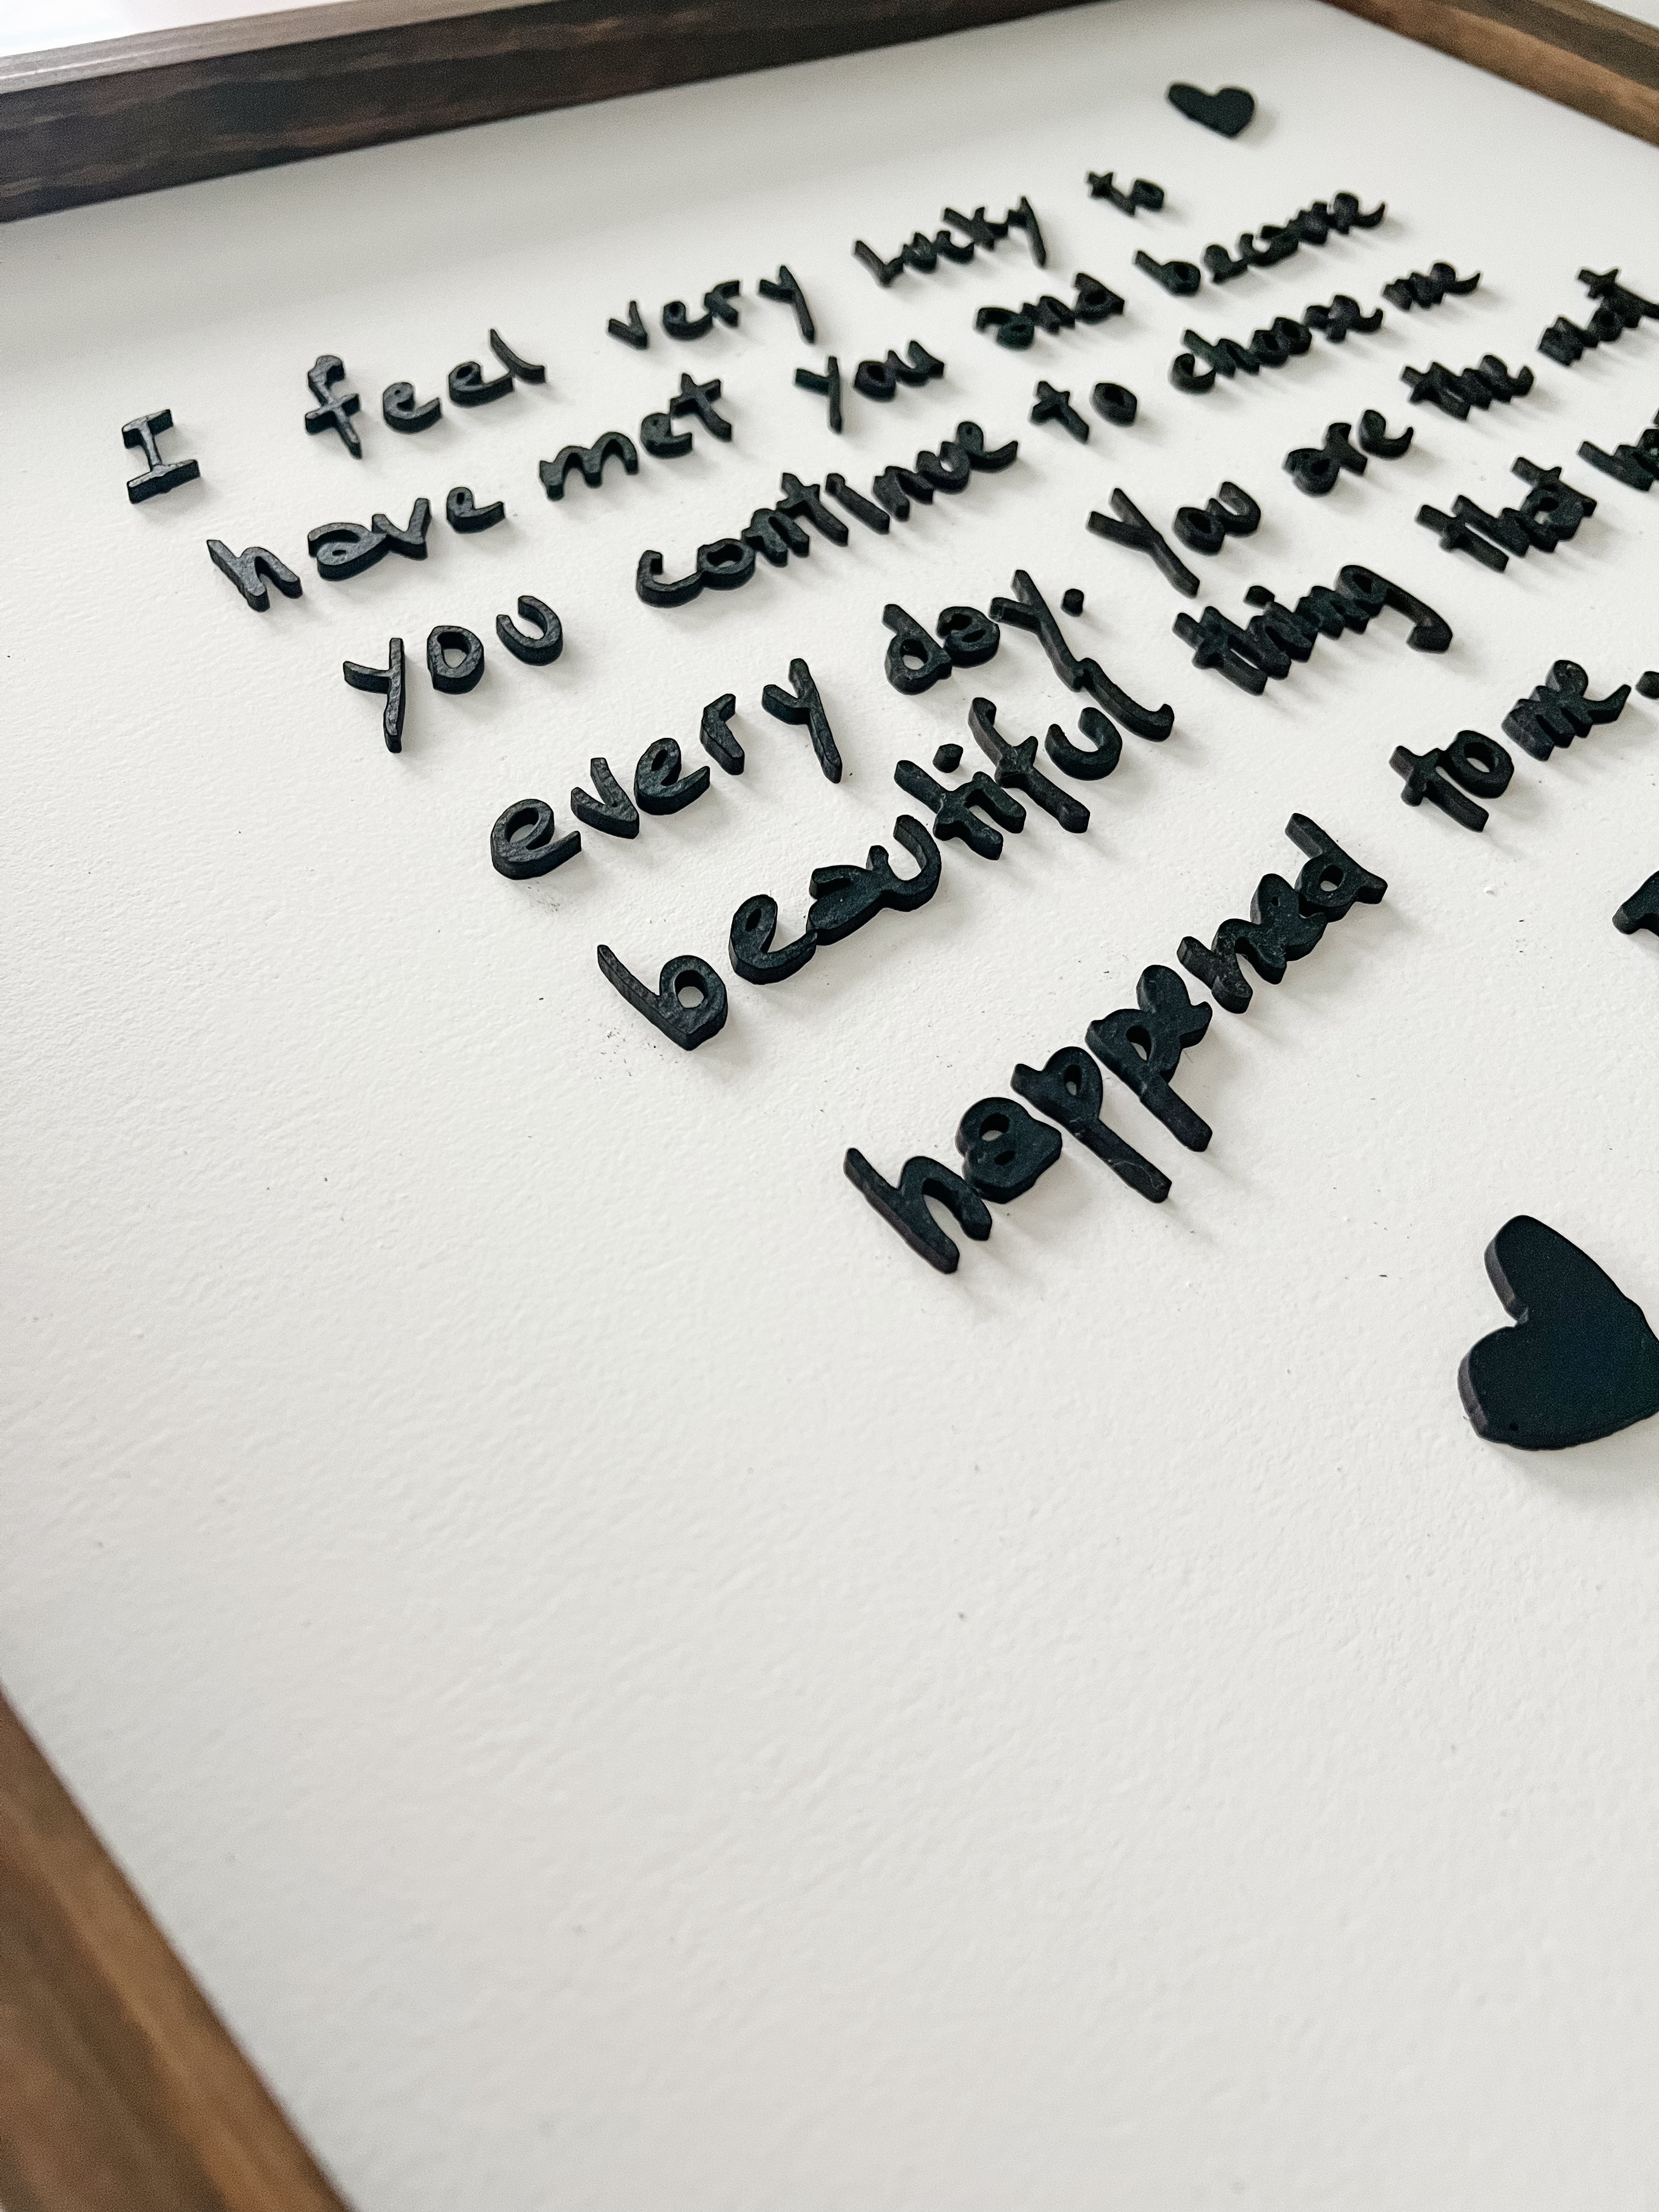 I feel very lucky to
have met you and
you continue to choose me
every day. You are the
beautiful thing that
happened to me.